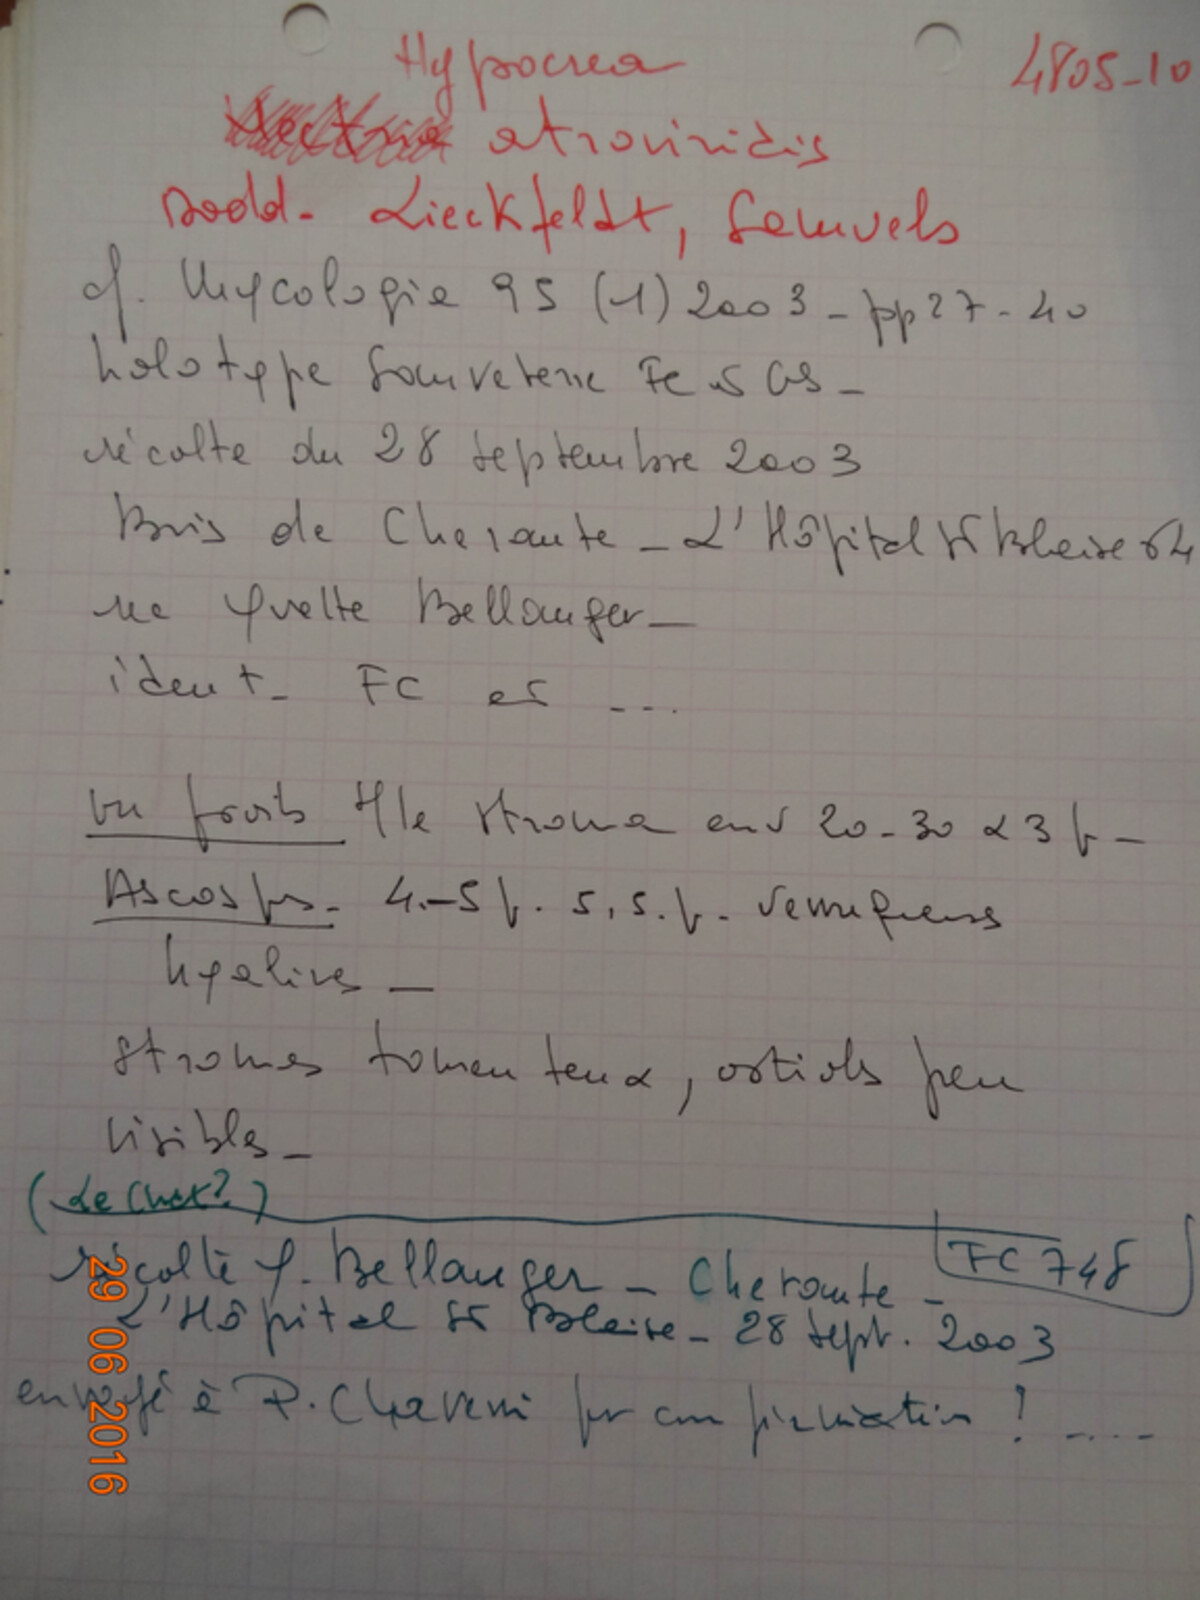 Hypocrea
4805-10
atroviridis
Dodd. Lieckfeldt, Samuels
cf. Mycologia 95 (1) 2003 - pp 27-40
holotype Sauveterre FC
récolte du 28 septembre 2003
Bois de Cheraute - L'Hôpital St Blaise 64
Yvette Bellanger -
ident. FC et ...
vu frais Hle stroma env 20-30 x 3
Ascosp. 4.-5 5,5. verruqueuses
hyalines -
stromes tomenteux, ostioles peu
visibles -
FC 748
récolte Y. Bellanger - Cheraute -
L'Hôpital St Blaise - 28 sept. 2003
envoyé à P. Chaverri pr confirmation ! ....
29 06 2016